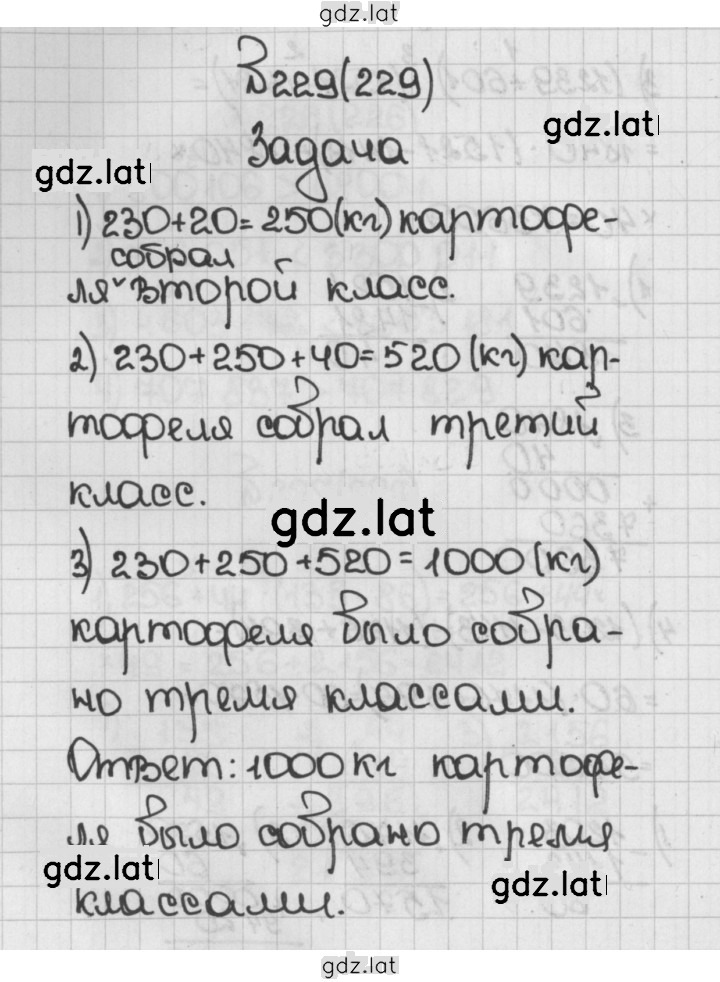 gdz.lat
В229(229)
gdz.lat
Задача
gdz.lat
1) 230+20=250(кг) картофе-
собрал
ля ˅ второй класс.
2) 230+250+40=520(кг) кар-
тофеля собрал третий
класс.
gdz.lat
3) 230+250+520=1000(кг)
картофеля было собра-
но тремя классами.
Ответ: 1000кг картофе-
ля было собрано тремя
gdz.lat
классами.
gdz.lat
gdz.lat